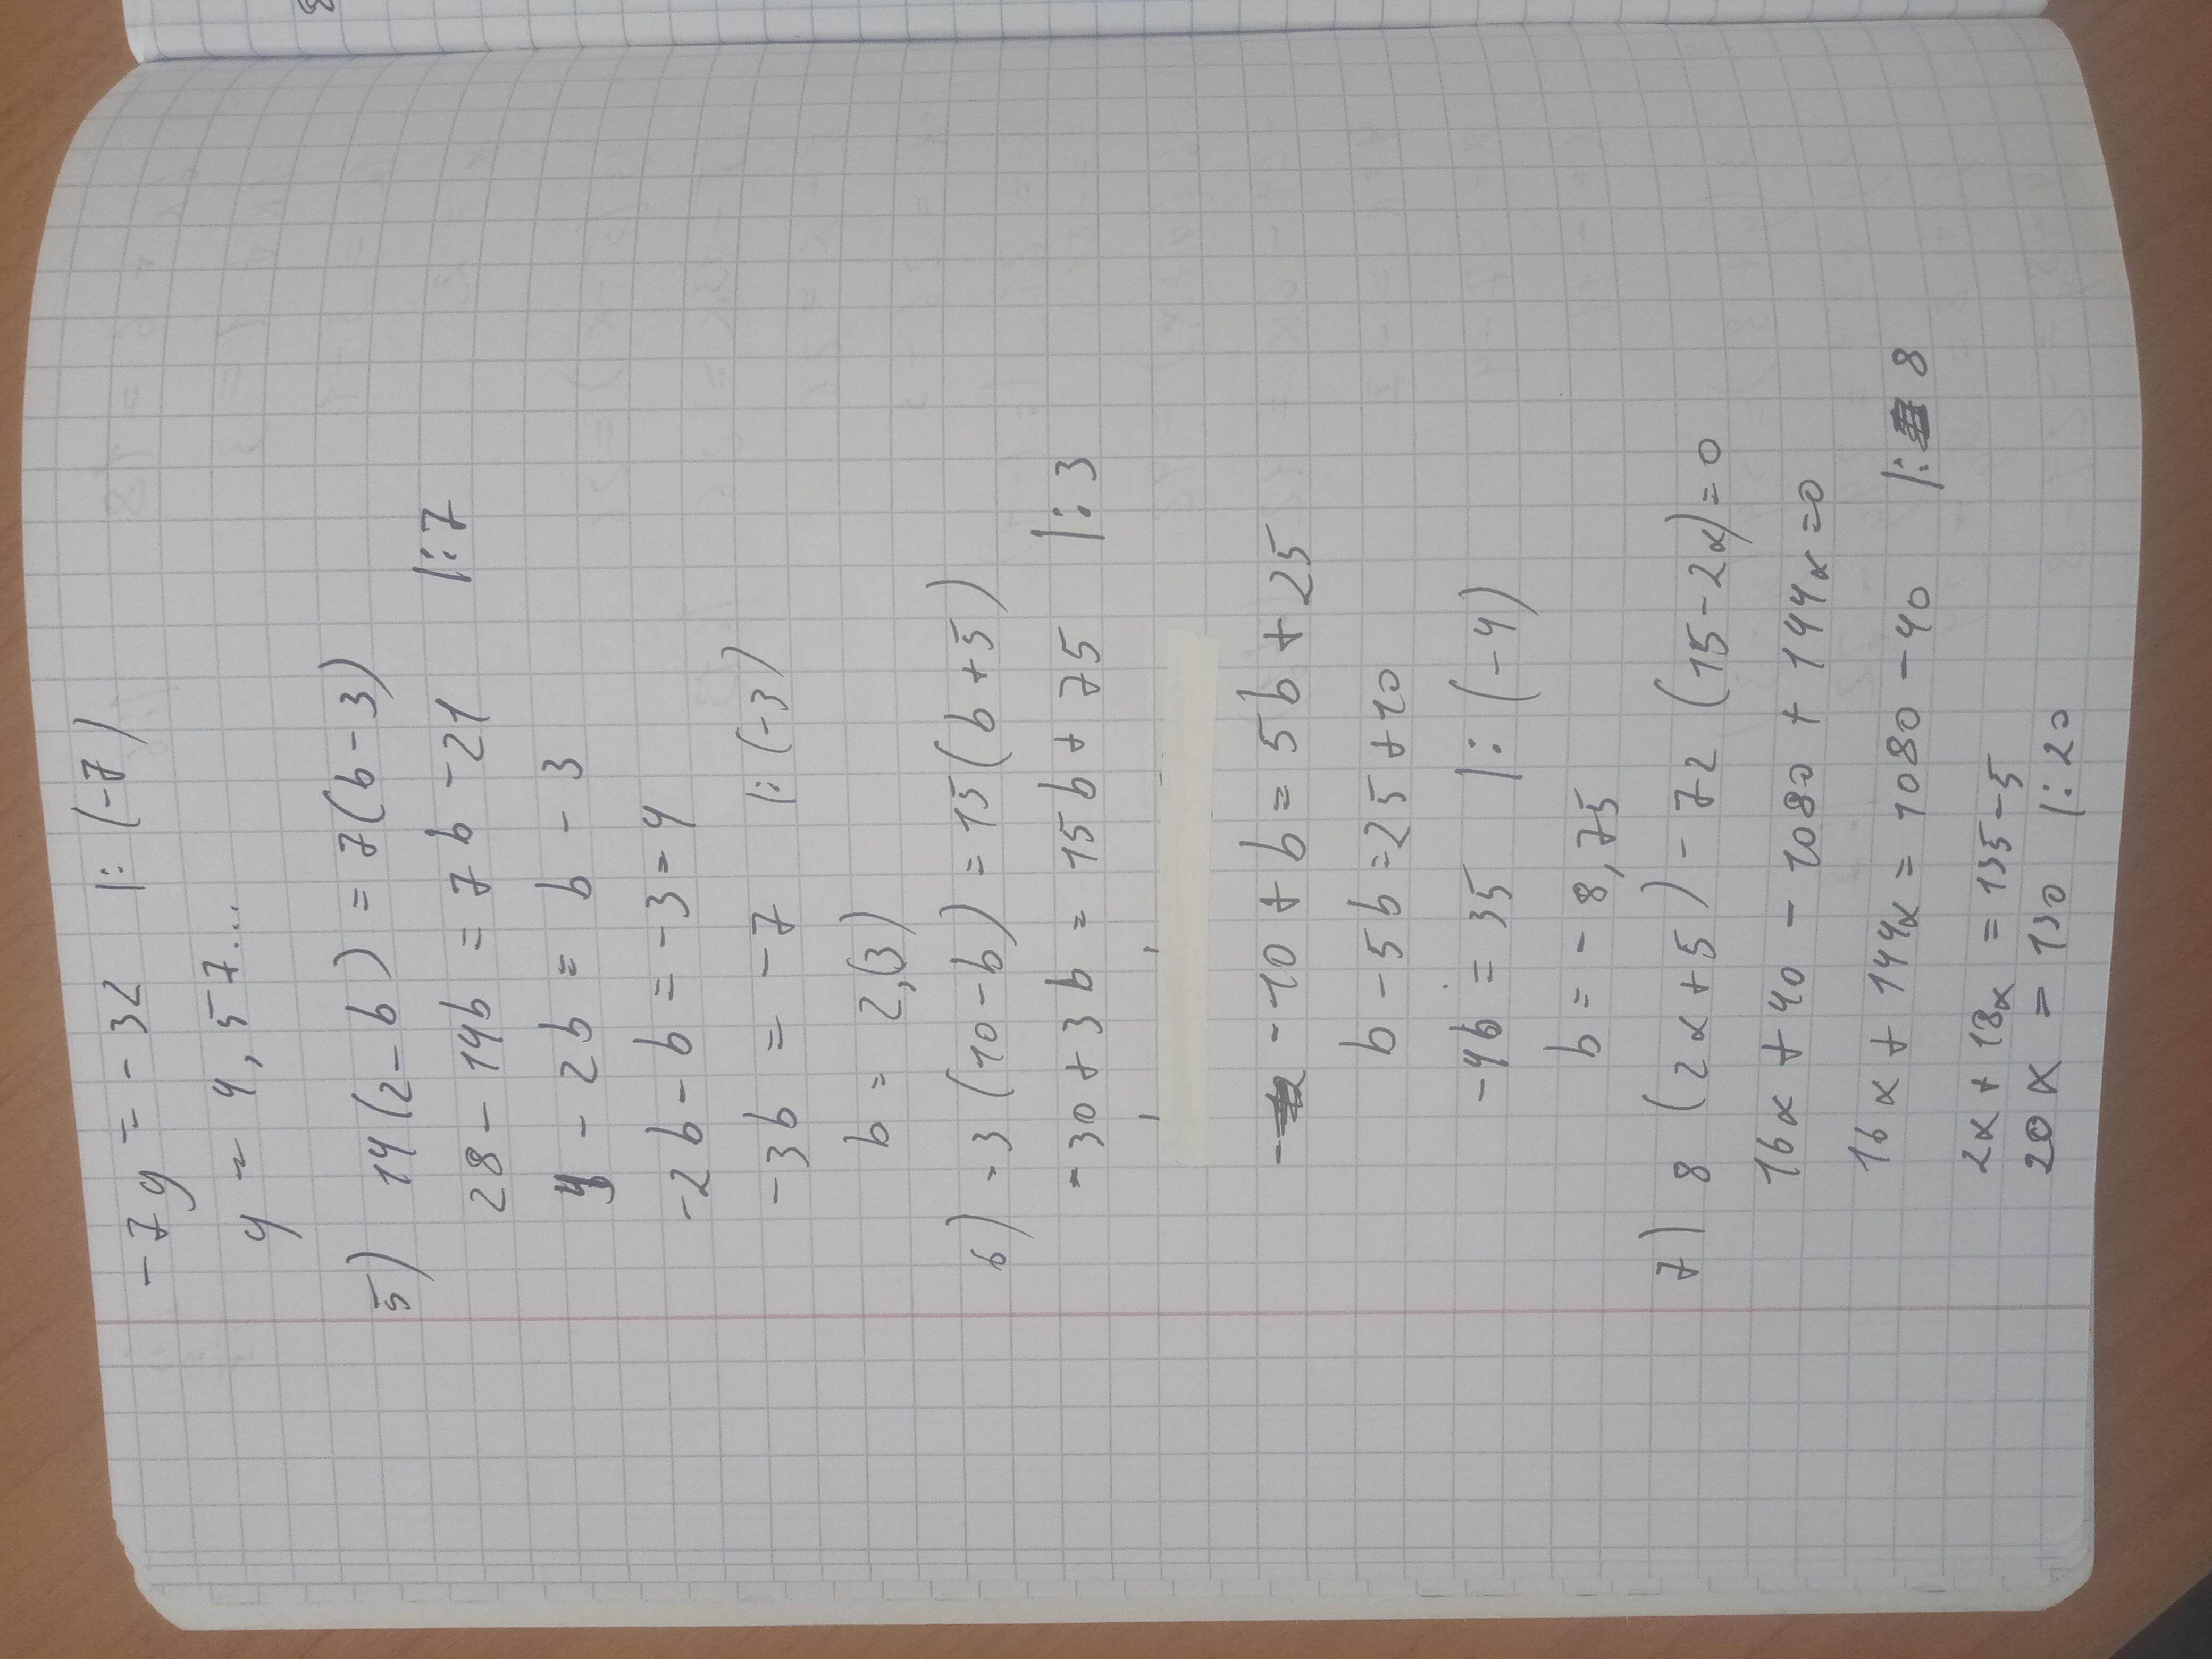 -7y = -32 |: (-7)
y = 4,57...
5) 14(2-b) = 7(b-3)
28 - 14b = 7b - 21 |:7
4 - 2b = b - 3
-2b - b = -3 = 4
-3b = -7 |: (-3)
b = 2,(3)
6) -3(10-b) = 15(b+5)
-30 + 3b = 15b + 75 |: 3
-10 + b = 5b + 25
b - 5b = 25 + 10
-4b = 35 |: (-4)
b = -8,75
7) 8(2x+5) - 72(15-2x) = 0
16x + 40 - 1080 + 144x = 0
16x + 144x = 1080 - 40 |: 8
2x + 18x = 135 - 5
20x = 130 |: 20